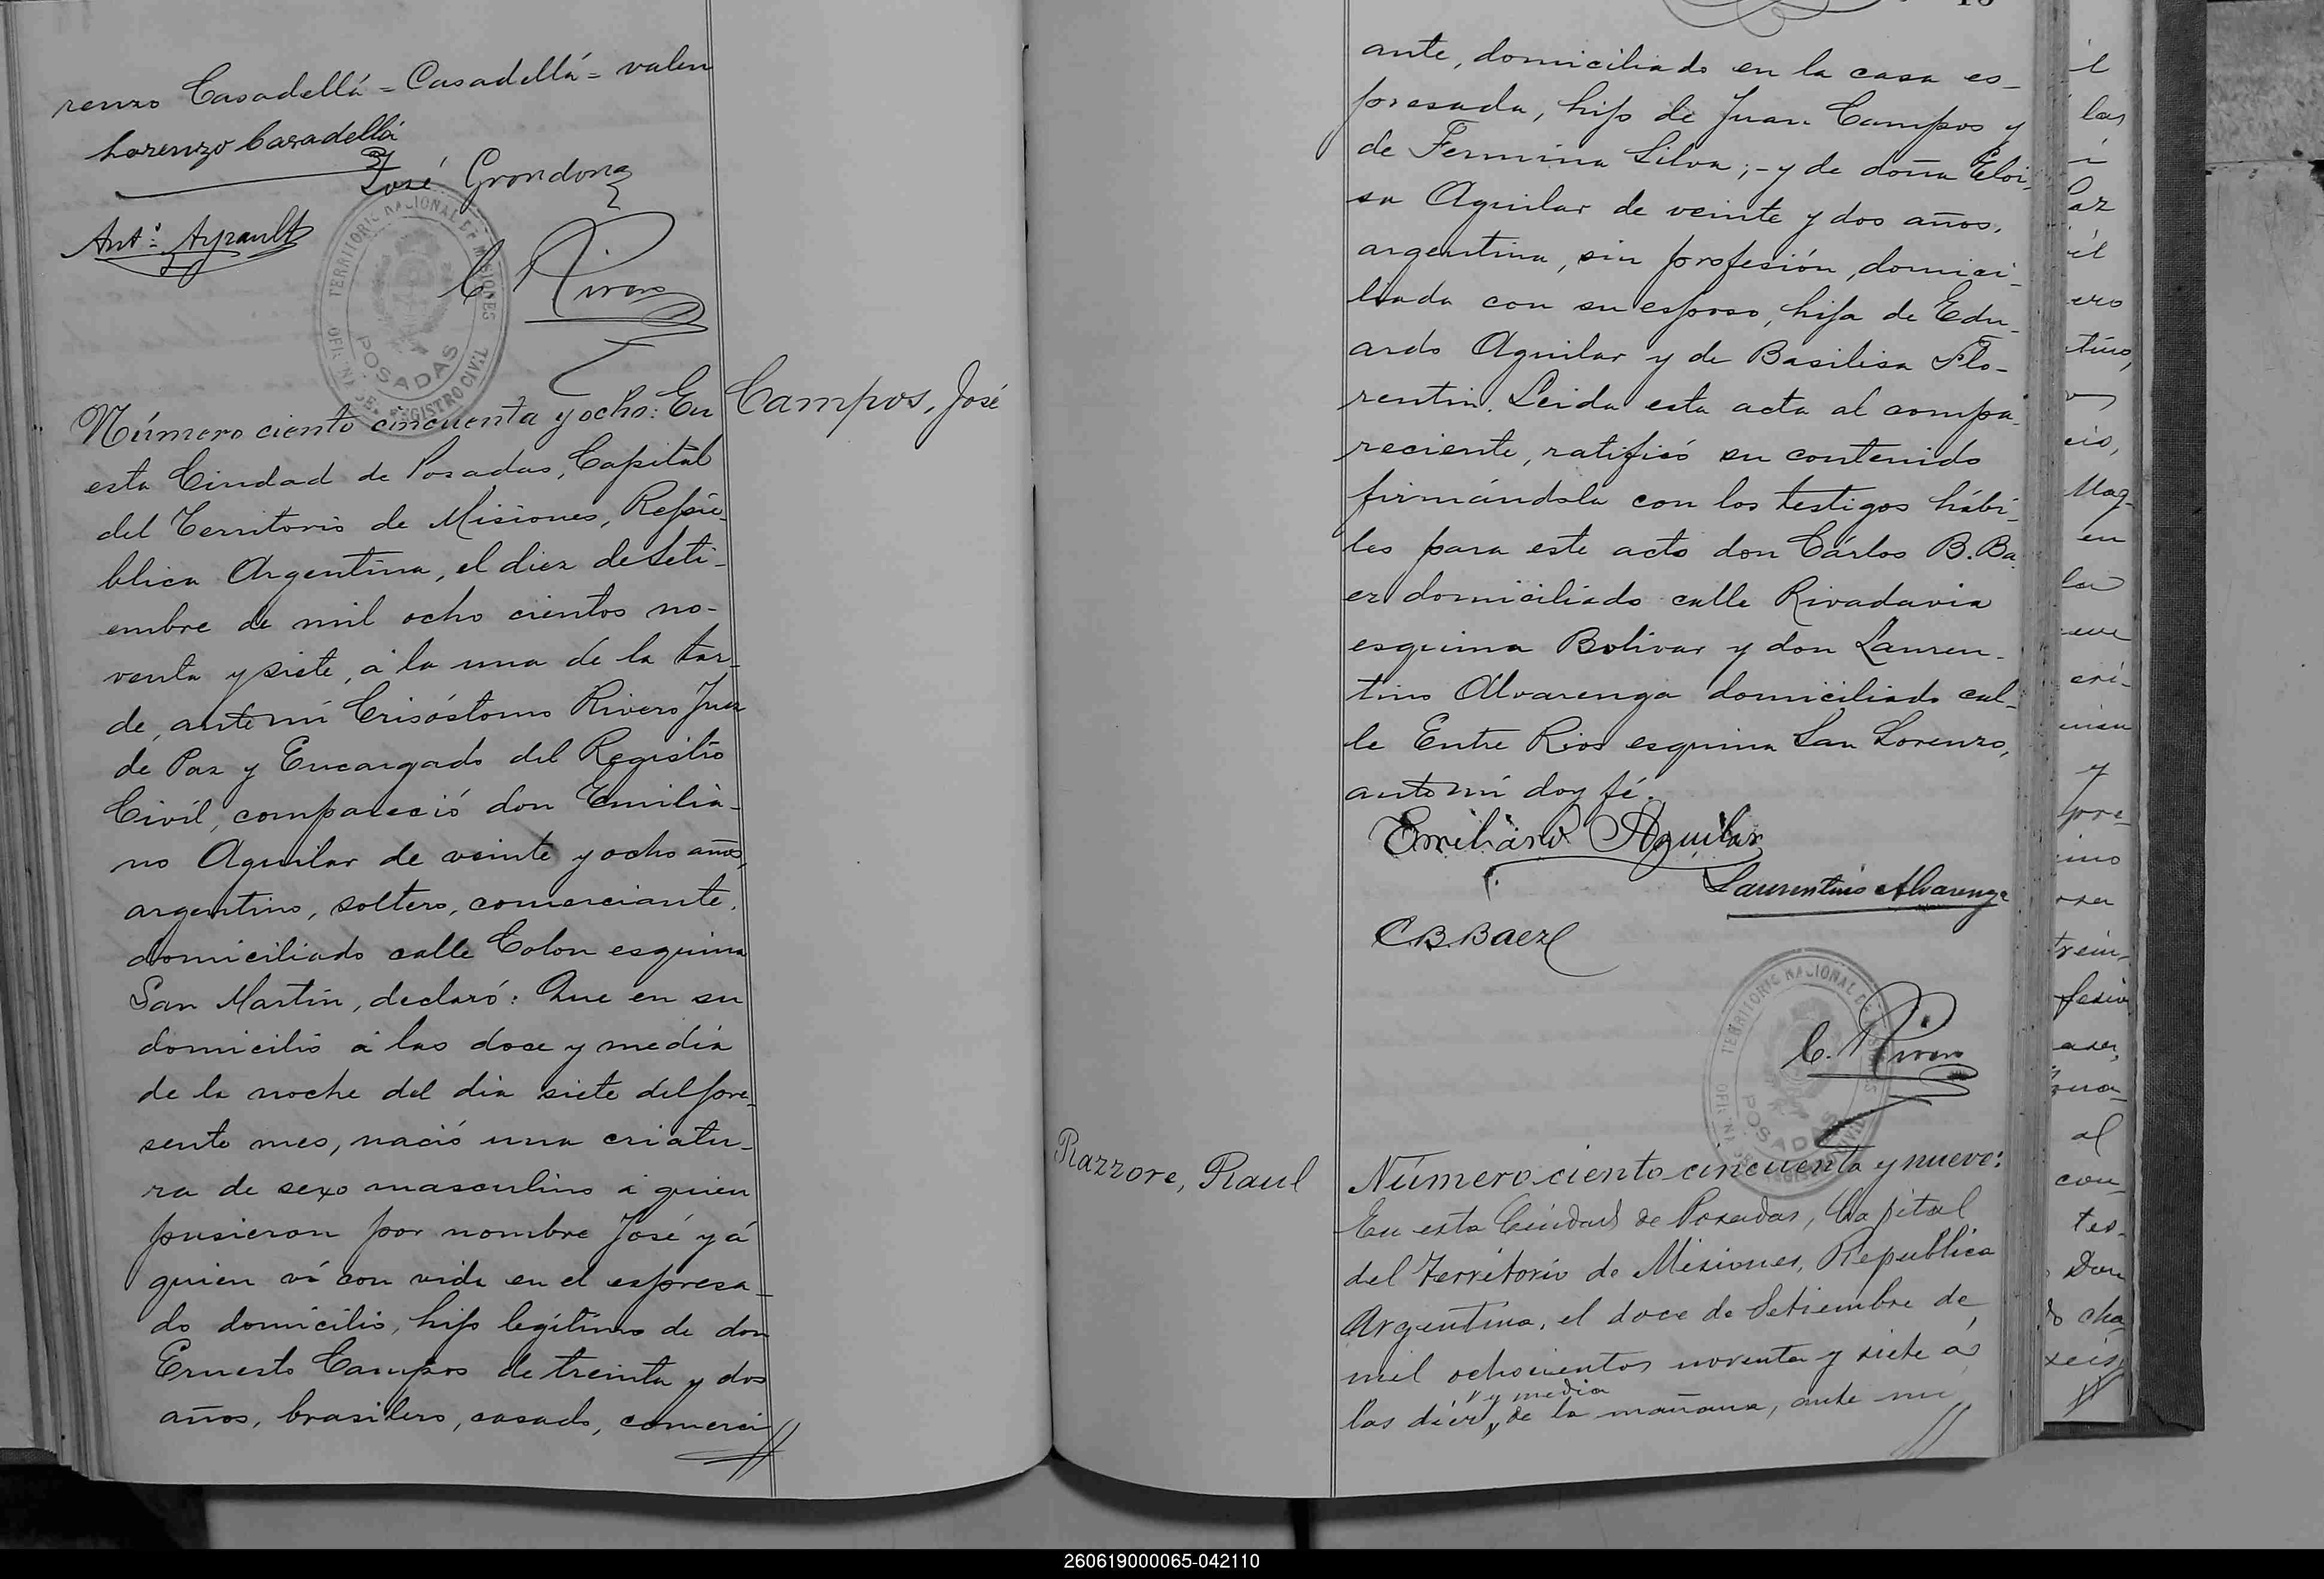 renzo Casadellá = Casadellá = valen
Lorenzo Casadellá
José Grondona
Ant.º Ayrault
C. Rivero
TERRITORIO NACIONAL DE MISIONES
POSADAS
OFICINA DEL REGISTRO CIVIL
Número ciento cincuenta y ocho: En
Campos, José
esta Ciudad de Posadas, Capital
del Territorio de Misiones, Repú-
blica Argentina, el diez de Seti-
embre de mil ocho cientos no-
venta y siete, á la una de la tar-
de, ante mí Crisóstomo Rivero Juez
de Paz y Encargado del Registro
Civíl, compareció don Emilia-
no Aguilar de veinte y ocho años,
argentino, soltero, comerciante,
domiciliado calle Colon esquina
San Martin, declaró: Que en su
domicilio á las doce y media
de la noche del dia siete del pre-
sente mes, nació una criatu-
ra de sexo masculino á quien
pusieron por nombre José y á
quien ví con vida en el espresa-
do domicilio, hijo legítimo de don
Ernesto Campos de treinta y dos
años, brasilero, casado, comerci
ante, domiciliado en la casa es-
presada, hijo de Juan Campos y
de Fermina Silva; - y de doña Eloi-
sa Aguilar de veinte y dos años,
argentina, sin profesión, domici-
liada con su esposo, hija de Edu-
ardo Aguilar y de Basilisa Flo-
rentin. Leida esta acta al compa-
reciente, ratificó su contenido
firmándola con los testigos hábi-
les para este acto don Cárlos B. Ba-
ez domiciliado calle Rivadavia
esquina Bolivar y don Lauren-
tino Alvarenga domiciliado cal-
le Entre Rios esquina San Lorenzo,
ante mí doy fé.
Emiliano Aguilar
Laurentino Alvarenga
C.B. Baez
TERRITORIO NACIONAL DE MISIONES
POSADAS
OFICINA DEL REGISTRO CIVIL
C. Rivero
Razzore, Raul
Número ciento cincuenta y nueve:
En esta Ciudad de Posadas, Capital
del Territorio de Misiones, Republica
Argentina, el doce de Setiembre de
mil ochocientos noventa y siete á
y media
las diez, de la mañana, ante mi
260619000065-042110